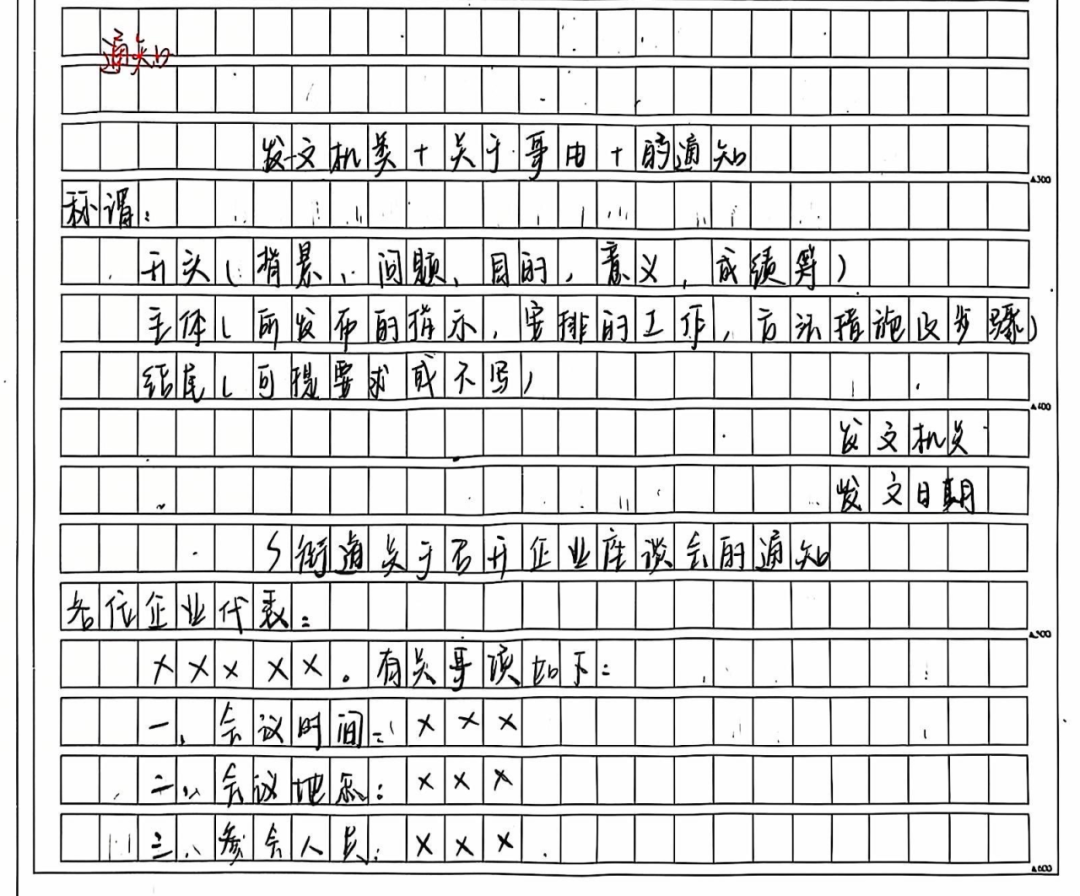 通知
发文机关+关于事由+的通知
▲300
称谓:
开头(背景、问题、目的,意义,成绩等)
主体(所发布的指示,安排的工作,方法措施及步骤)
结尾(可提要求或不写)
▲400
发文机关
发文日期
S街道关于召开企业座谈会的通知
各位企业代表:
▲500
×××××。有关事项如下:
一、会议时间:×××
二、会议地点:×××
三、参会人员:×××
▲600